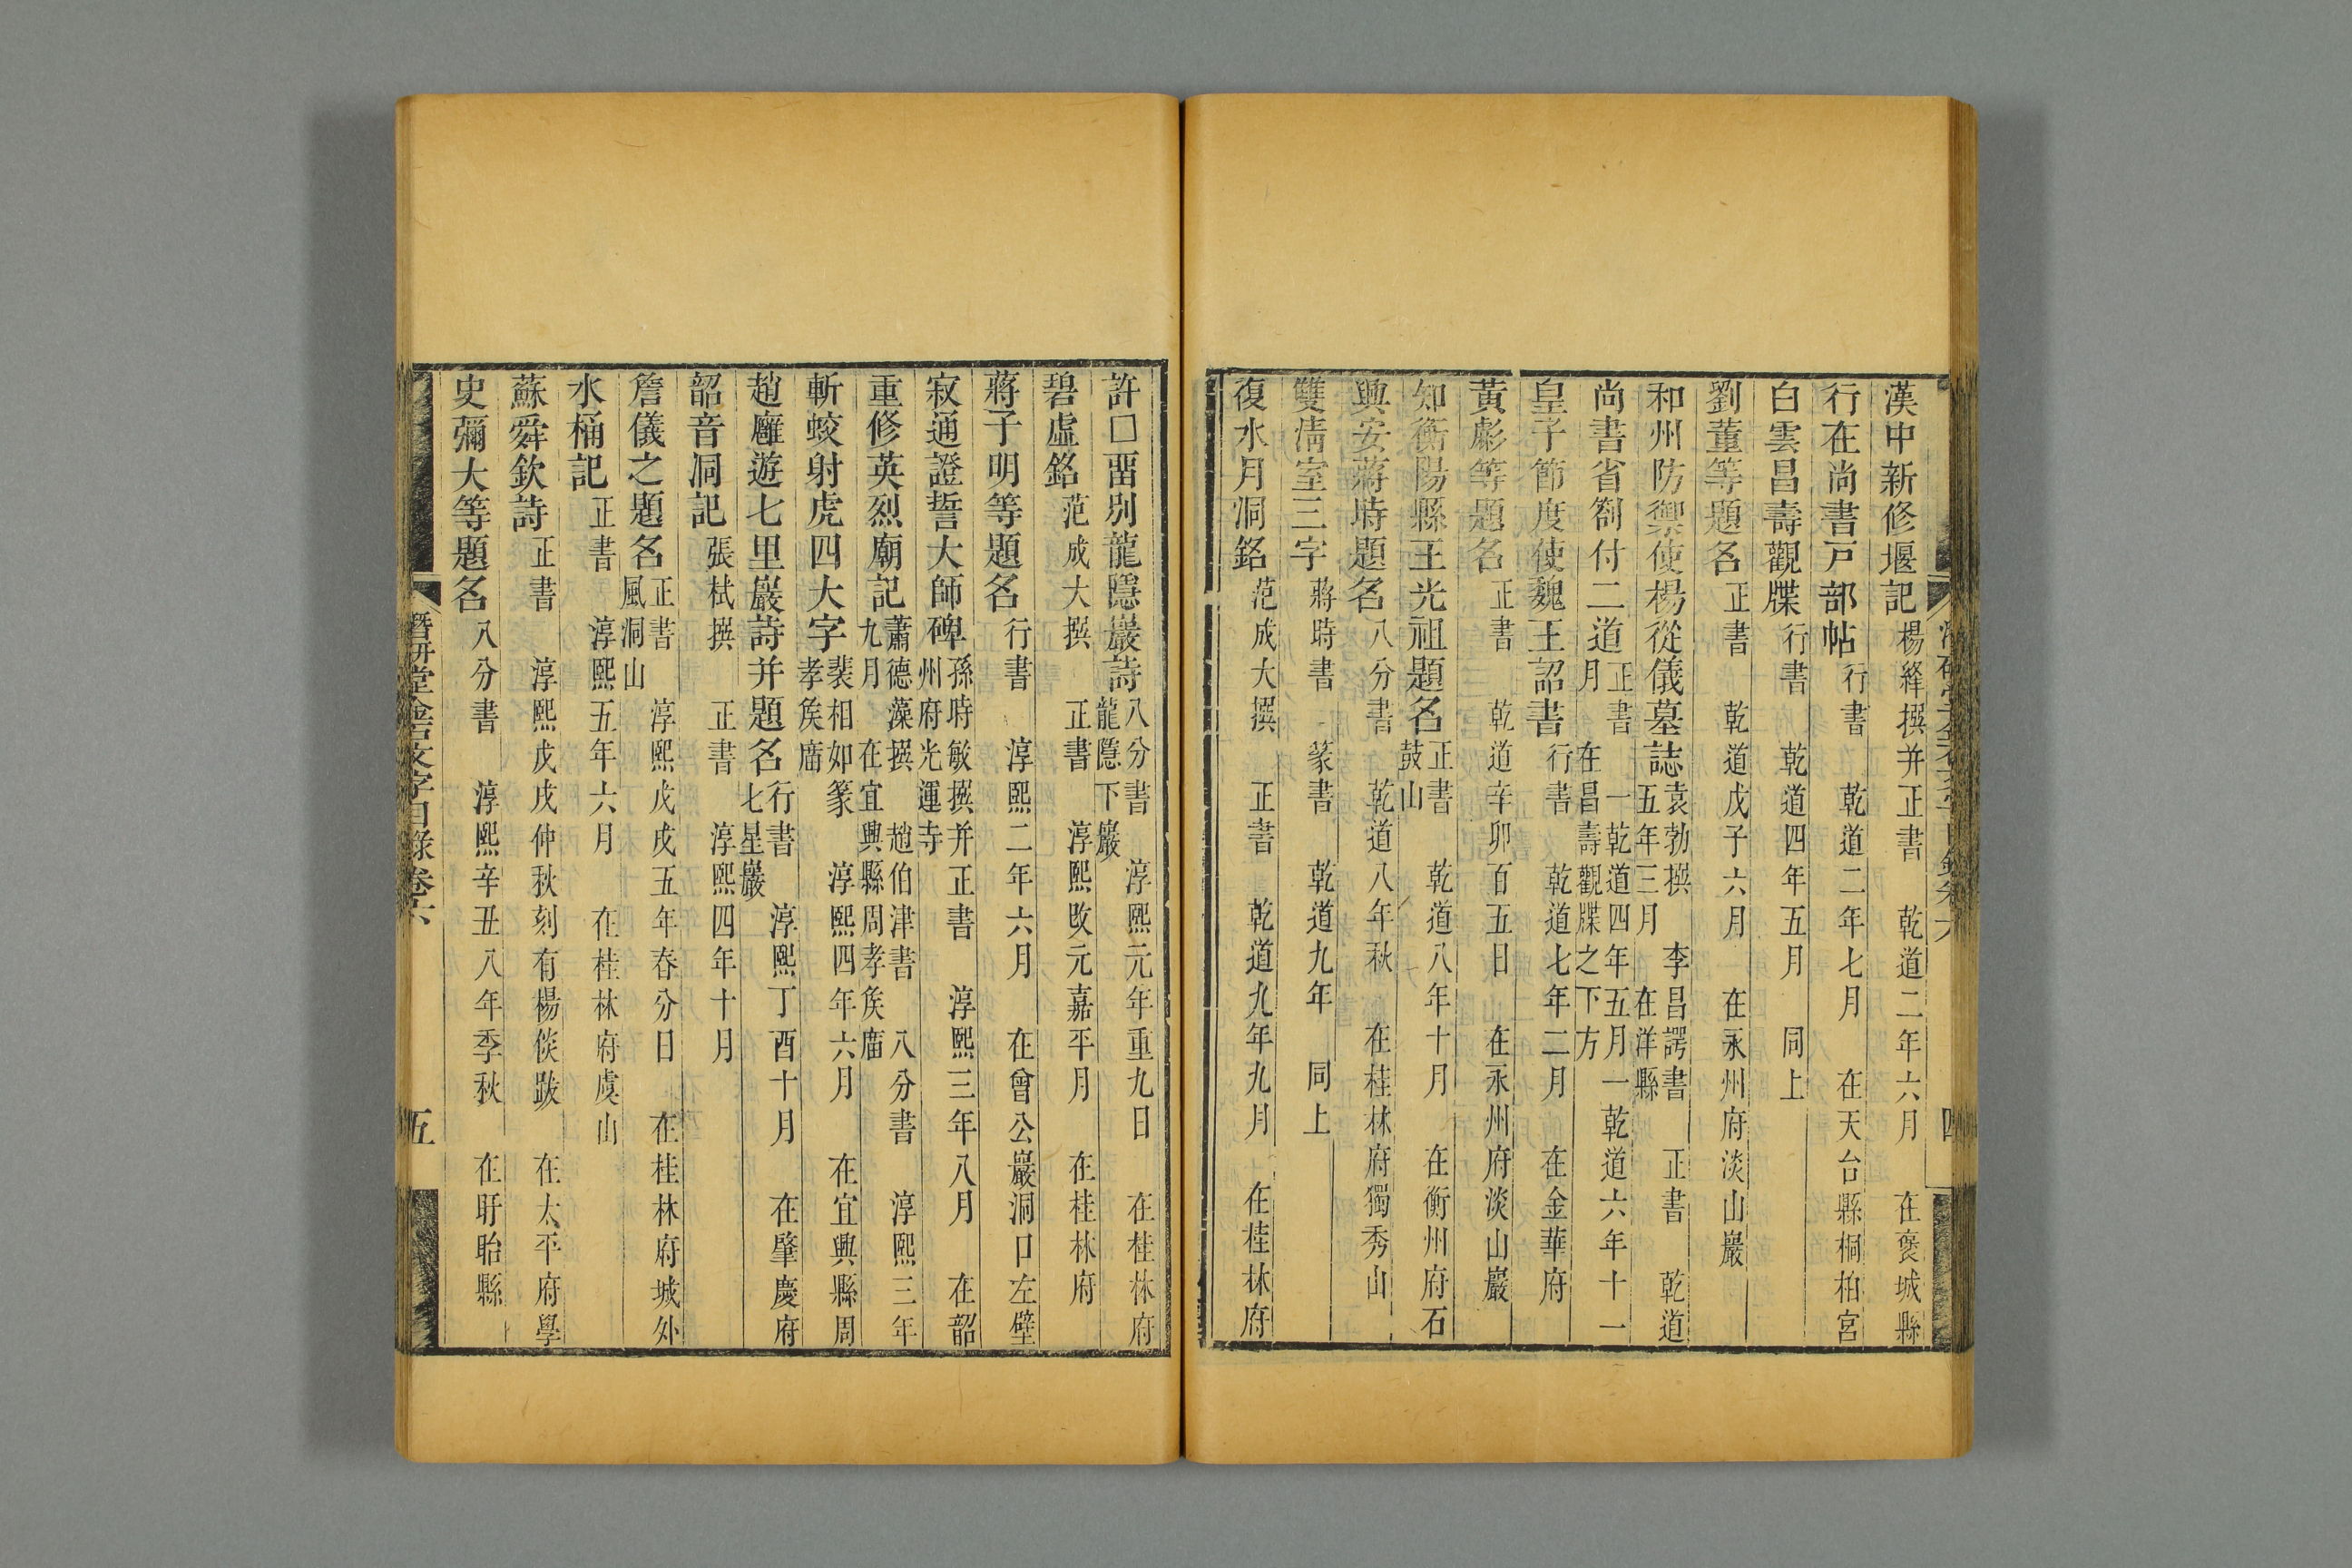 漢中新修堰記 楊絳撰并正書 乾道二年六月 在褒城縣
行在尚書戸部帖 行書 乾道二年七月 在天台縣桐柏宮
白雲昌壽觀牒 行書 乾道四年五月 同上
劉董等題名 正書 乾道戊子六月 在永州府淡山巖
和州防禦使楊從儀墓誌 袁勃撰 李昌諤書 正書 乾道五年三月 在洋縣
尚書省劄付二道 正書 一乾道四年五月一乾道六年十一月 在昌壽觀牒之下方
皇子節度使魏王詔書 行書 乾道七年二月 在金華府
黃彪等題名 正書 乾道辛卯百五日 在永州府淡山巖
知衡陽縣王光祖題名 正書 乾道八年十月 在衡州府石鼓山
興安蔣時題名 八分書 乾道八年秋 在桂林府獨秀山
雙清室三字 蔣時書 篆書 乾道九年 同上
復水月洞銘 范成大撰 正書 乾道九年九月 在桂林府
四
許□畱別龍隱巖詩 八分書 淳熙元年重九日 在桂林府龍隱下巖
碧虛銘 范成大撰 正書 淳熙改元嘉平月 在桂林府
蔣子明等題名 行書 淳熙二年六月 在曾公巖洞口左壁
寂通證誓大師碑 孫時敏撰并正書 淳熙三年八月 在韶州府光運寺
重修英烈廟記 蕭德藻撰 趙伯津書 八分書 淳熙三年九月 在宜興縣周孝矦廟
斬蛟射虎四大字 裴相如篆 淳熙四年六月 在宜興縣周孝矦廟
趙雝遊七里巖詩并題名 行書 淳熙丁酉十月 在肇慶府七星巖
韶音洞記 張栻撰 正書 淳熙四年十月
詹儀之題名 正書 淳熙戊戌五年春分日 在桂林府城外風洞山
水桶記 正書 淳熙五年六月 在桂林府虞山
蘇舜欽詩 正書 淳熙戊戌仲秋刻有楊倓跋 在太平府學
史彌大等題名 八分書 淳熙辛丑八年季秋 在盱眙縣
潛研堂金石文字目錄卷六 五